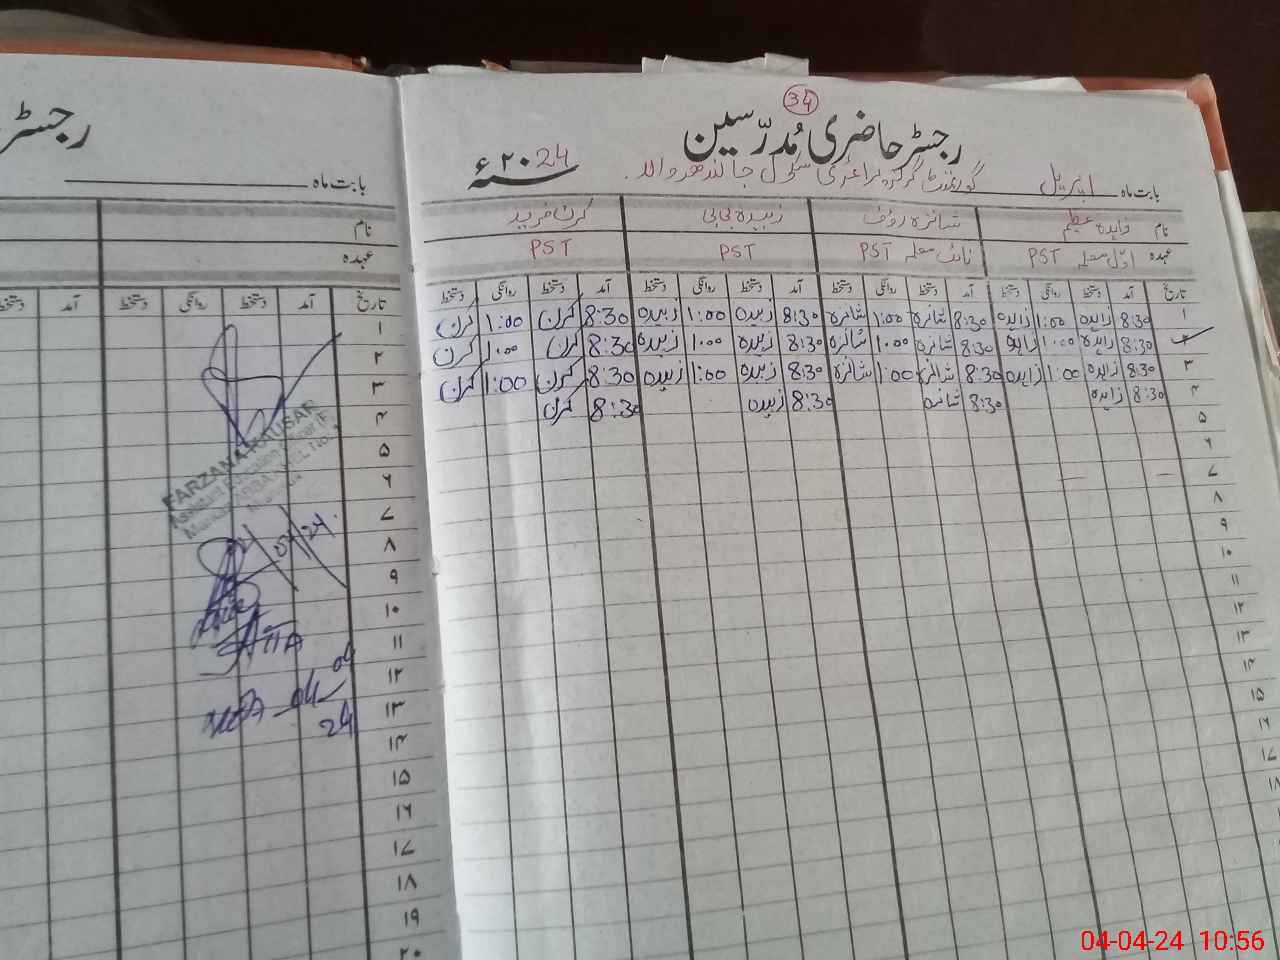 34
رجسٹر حاضری مُدرّسین
بابت ماہ اپریل گورنمنٹ گرلز پرائمری سکول جالندھر والا ۔ سنہ ۲۰24ء
نام زاہدہ عظیم شائزہ رؤف زبیدہ بی بی کرن فرید
عہدہ اوّل معلمہ PST نائب معلمہ PST PST PST
تاریخ آمد دستخط روانگی دستخط آمد دستخط روانگی دستخط آمد دستخط روانگی دستخط آمد دستخط روانگی دستخط
۱ 8:30 زاہدہ 1:00 زاہدہ 8:30 شائزہ 1:00 شائزہ 8:30 زبیدہ 1:00 زبیدہ 8:30 کرن 1:00 کرن
۲ 8:30 زاہدہ 1:00 زاہدہ 8:30 شائزہ 1:00 شائزہ 8:30 زبیدہ 1:00 زبیدہ 8:30 کرن 1:00 کرن
۳ 8:30 زاہدہ 1:00 زاہدہ 8:30 شائزہ 1:00 شائزہ 8:30 زبیدہ 1:00 زبیدہ 8:30 کرن 1:00 کرن
۴ 8:30 زاہدہ 8:30 شائزہ 8:30 زبیدہ 8:30 کرن
۵
۶
۷
۸
۹
۱۰
۱۱
۱۲
۱۳
۱۴
۱۵
۱۶
۱۷
۱۸
رجسٹر
بابت ماہ
نام
عہدہ
تاریخ آمد دستخط روانگی دستخط آمد دستخط
۱
۲
۳
۴
FARZANA KAUSAR
۵
۶
۷
۸
۹
۱۰
۱۱
۱۲
04
MEA 04
۱۳
24
۱۴
۱۵
۱۶
۱۷
۱۸
۱۹
۲۰
04-04-24 10:56